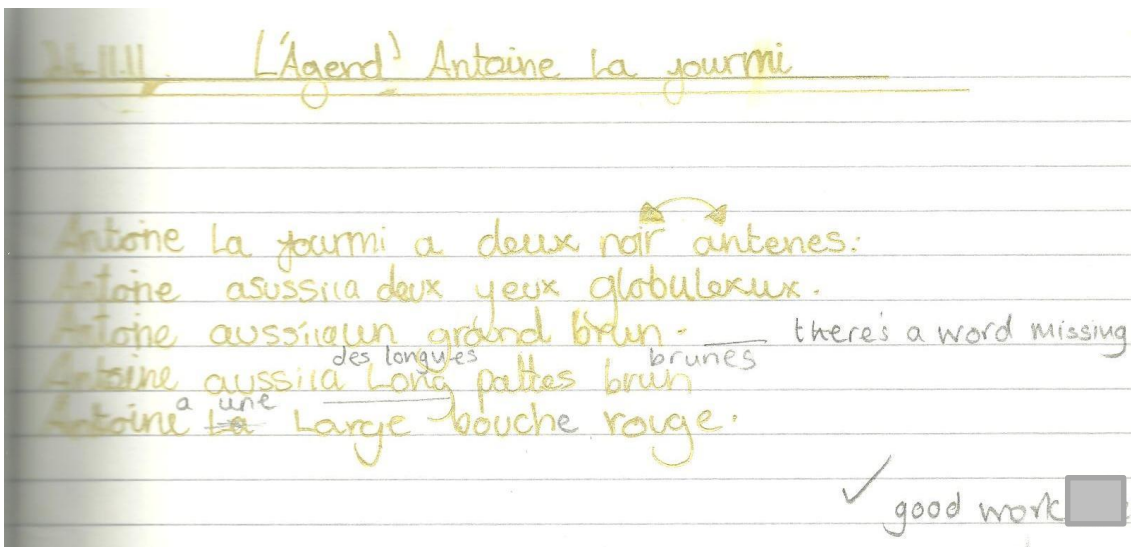 24.11.11. L'Agend' Antoine La fourmi
Antoine La fourmi a deux noir antenes.
Antoine asussiia deux yeux globulexux.
Antoine aussiiaun grand brun. ___ there's a word missing
des longues brunes
Antoine aussiia Long pattes brun
a une
Antoine La Large bouche rouge.
✓ good work